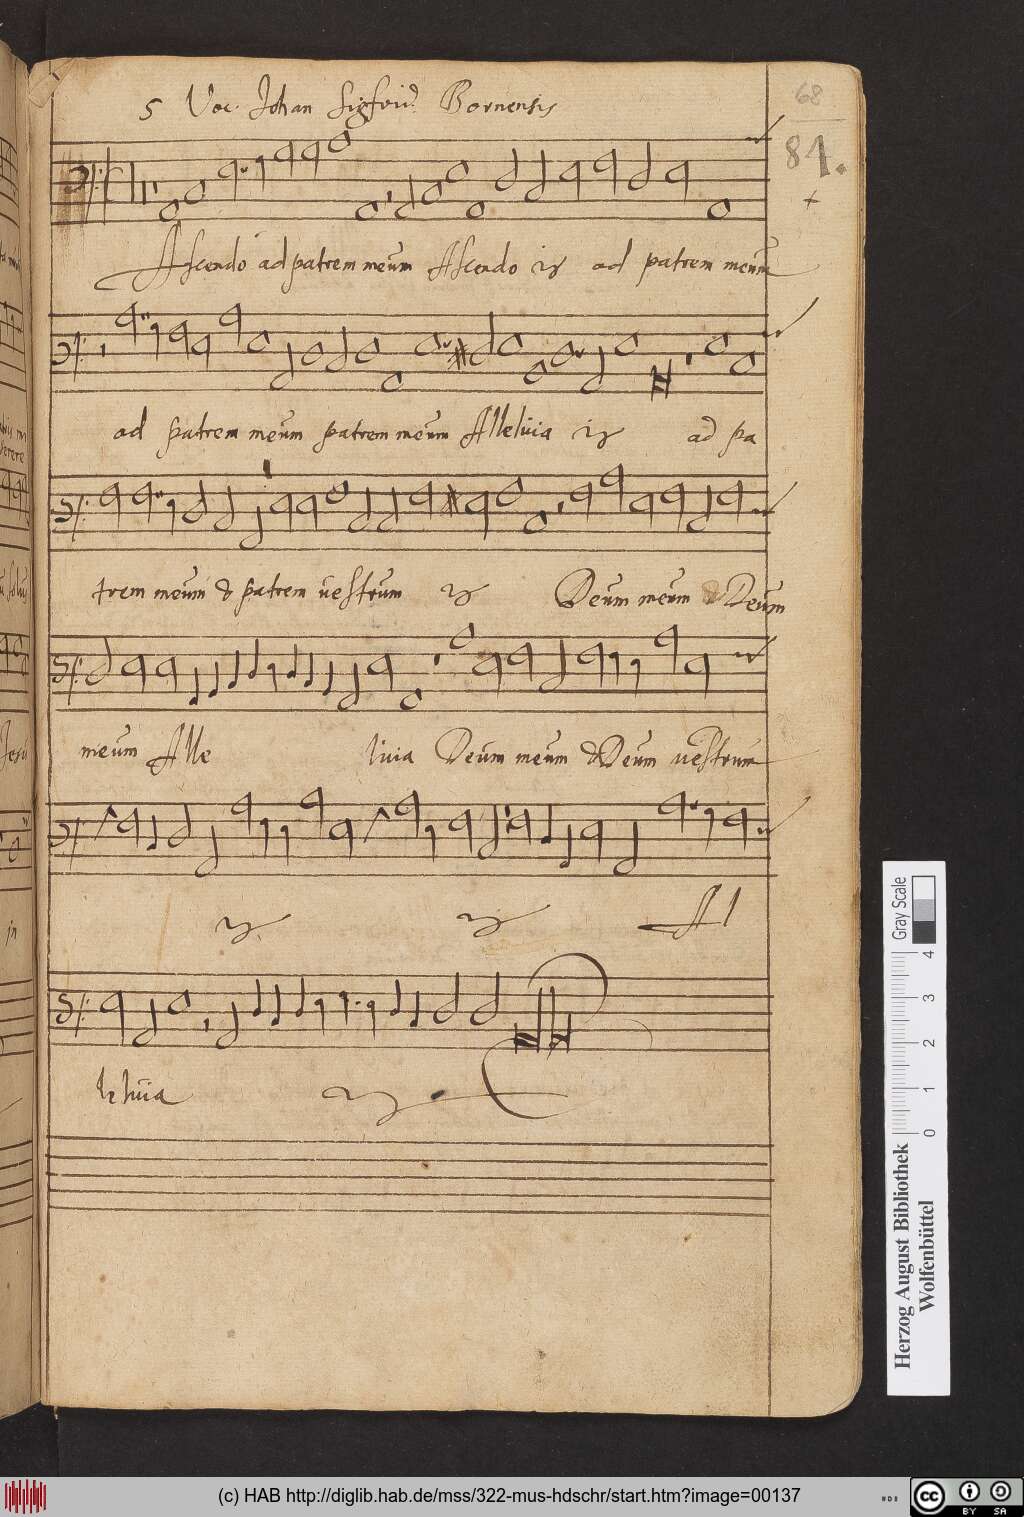 5 Voc. Johan Sigfrid. Bornensis
68
84.
Ascendo ad patrem meum Ascendo ij ad patrem meum
ad patrem meum patrem meum Alleluia ij ad pa
trem meum & patrem vestrum ij Deum meum & Deum
meum Alle luia Deum meum & Deum vestrum
ij ij Al
leluia ij
Gray Scale
0 1 2 3 4
Herzog August Bibliothek
Wolfenbüttel
(c) HAB http://diglib.hab.de/mss/322-mus-hdschr/start.htm?image=00137
cc BY SA